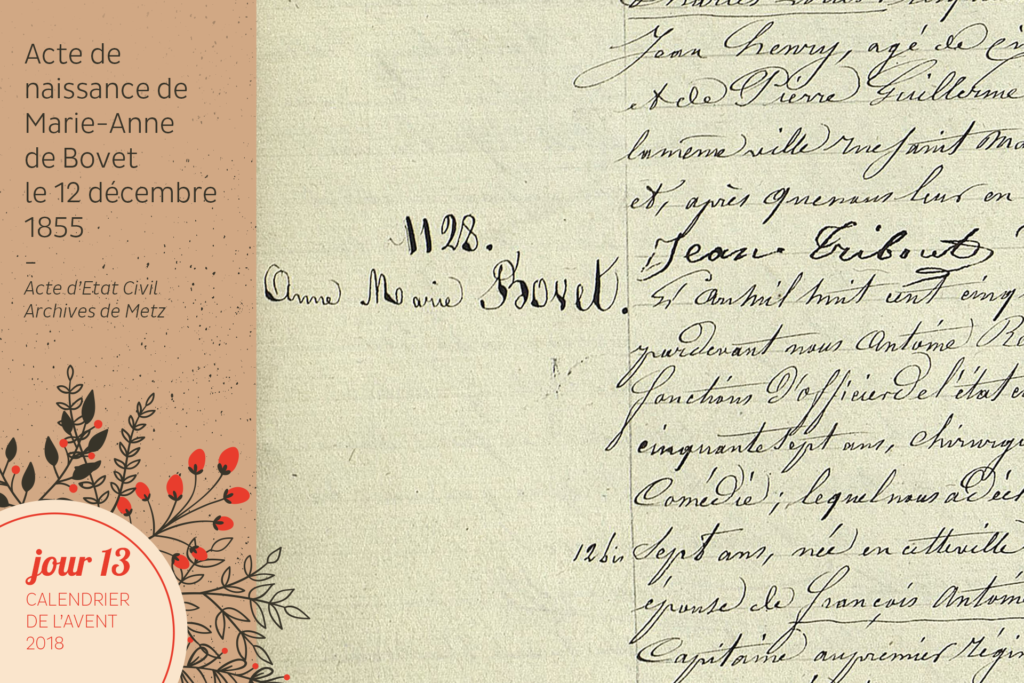 Acte de
naissance de
Marie-Anne
de Bovet
le 12 décembre
1855
–
Acte d'Etat Civil
Archives de Metz
jour 13
CALENDRIER
DE L'AVENT
2018
1128.
Anne Marie Bovet.
Jean henry, agé de
et de Pierre Guillerme
la même ville rue saint
et, après que nous leur en
Jean Tribout
L'an mil huit cent cinq
pardevant nous Antoine
fonctions d'officier de l'état
cinquante sept ans, chirurg
Comédie; lequel nous a
12 bis
sept ans, née en cette ville
épouse de françois Antoine
Capitaine au premier Régi